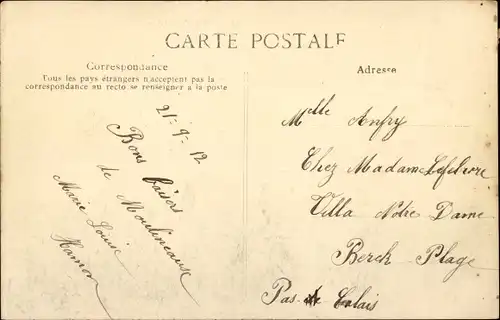 CARTE POSTALE
Correspondance
Tous les pays étrangers n'acceptent pas la
correspondance au recto se renseigner a la poste
Adresse
21-9-12
Bons baisers
de Moulineaux
Marie Louise
Hamon
Melle Anfry
Chez Madame Lefebvre
Villa Notre Dame
Berck Plage
Pas de Calais